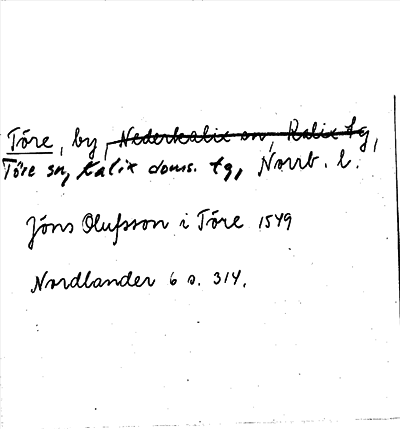 Töre, by, Nederkalix sn, Kalix tg,
Töre sn, Kalix doms. tg, Norrb. l.
Jöns Olufsson i Töre 1549
Nordlander 6 s. 314.